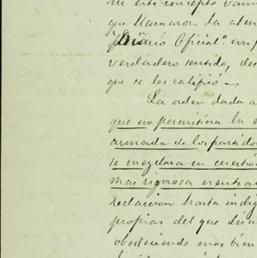 en este concepto vam
que llamaron la aten
"Diario Oficial" con
verdadero sentido, des
que se les calificó.—
La orden dada a
que no permitiera la e
armada de los partido
se mezclara en cuestio
mas rigorosa neutra
relacion hasta indig
propias del que dis
obedeciendo mas bien